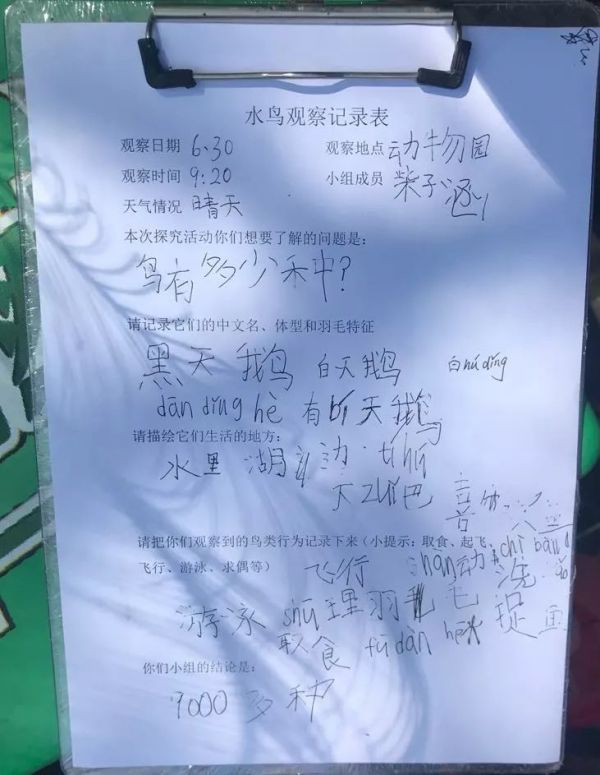 水鸟观察记录表
观察日期 6.30 观察地点 动物园
观察时间 9:20 小组成员 柴子涵
天气情况 晴天
本次探究活动你们想要了解的问题是:
鸟有多少种?
请记录它们的中文名、体型和羽毛特征
黑天鹅 白天鹅 白hú dǐng
dān dǐng hè 有bí天鹅
请描绘它们生活的地方:
水里 湖边 tí hú
大zuǐ巴
请把你们观察到的鸟类行为记录下来(小提示:取食、起飞、
飞行、游泳、求偶等) 飞行 shàn动 chì bǎng
游泳 shū理羽毛 洗
取食 fū dàn 捉
你们小组的结论是:
9000多种